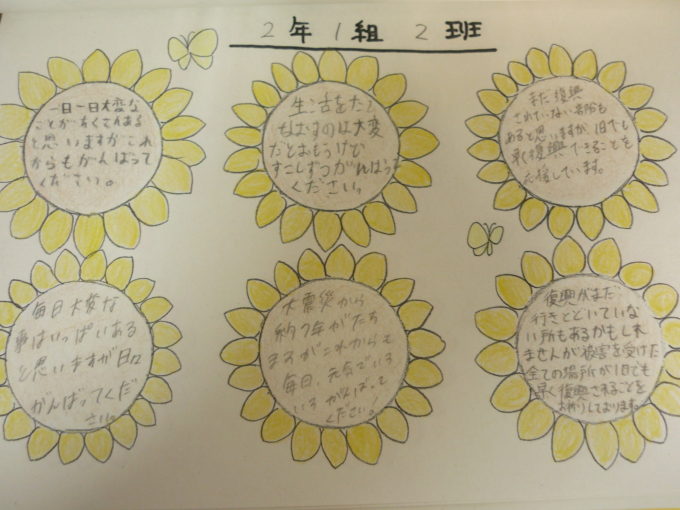 2年1組 2班
一日一日大変な
ことがたくさんある
と思いますがこれ
からもがんばって
ください。
生活をたて
なおすのは大変
だとおもうけど
すこしずつがんばって
ください。
まだ復興
されていない場所も
あると思いますが1日でも
早く復興できることを
応援しています。
毎日大変な
事はいっぱいある
と思いますが日々
がんばってくだ
さい。
大震災から
約7年がたち
ますがこれからも
毎日、元気でいろ
いろがんばって
ください!
復興がまだ
行きとどいていな
い所もあるかもしれ
ませんが被害を受けた
全ての場所が1日でも
早く復興されることを
お祈りしております。